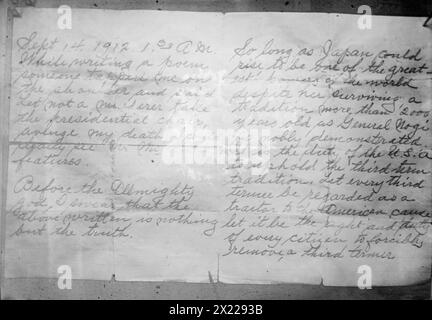 Sept 14. 1912 1.30 A.M.
While writing a poem
someone tapped me on
the shoulder and said
Let not a murderer take
the presidential chair,
avenge my death
features
Before the Almighty
God, I swear that the
above written, is nothing
but the truth.
So long as Japan could
rise to be one of the great-
est powers of the world
despite her surviving a
tradition more than 2000
years old as General Nogi
nobly demonstrated
it is the duty of the U.S.A.
to uphold the third term
tradition. Let every third
termer be regarded as a
traitor to the American cause
let it be the right and duty
of every citizen to forcibly
remove, a third termer
alamy
Image ID: 2G2293B
www.alamy.com